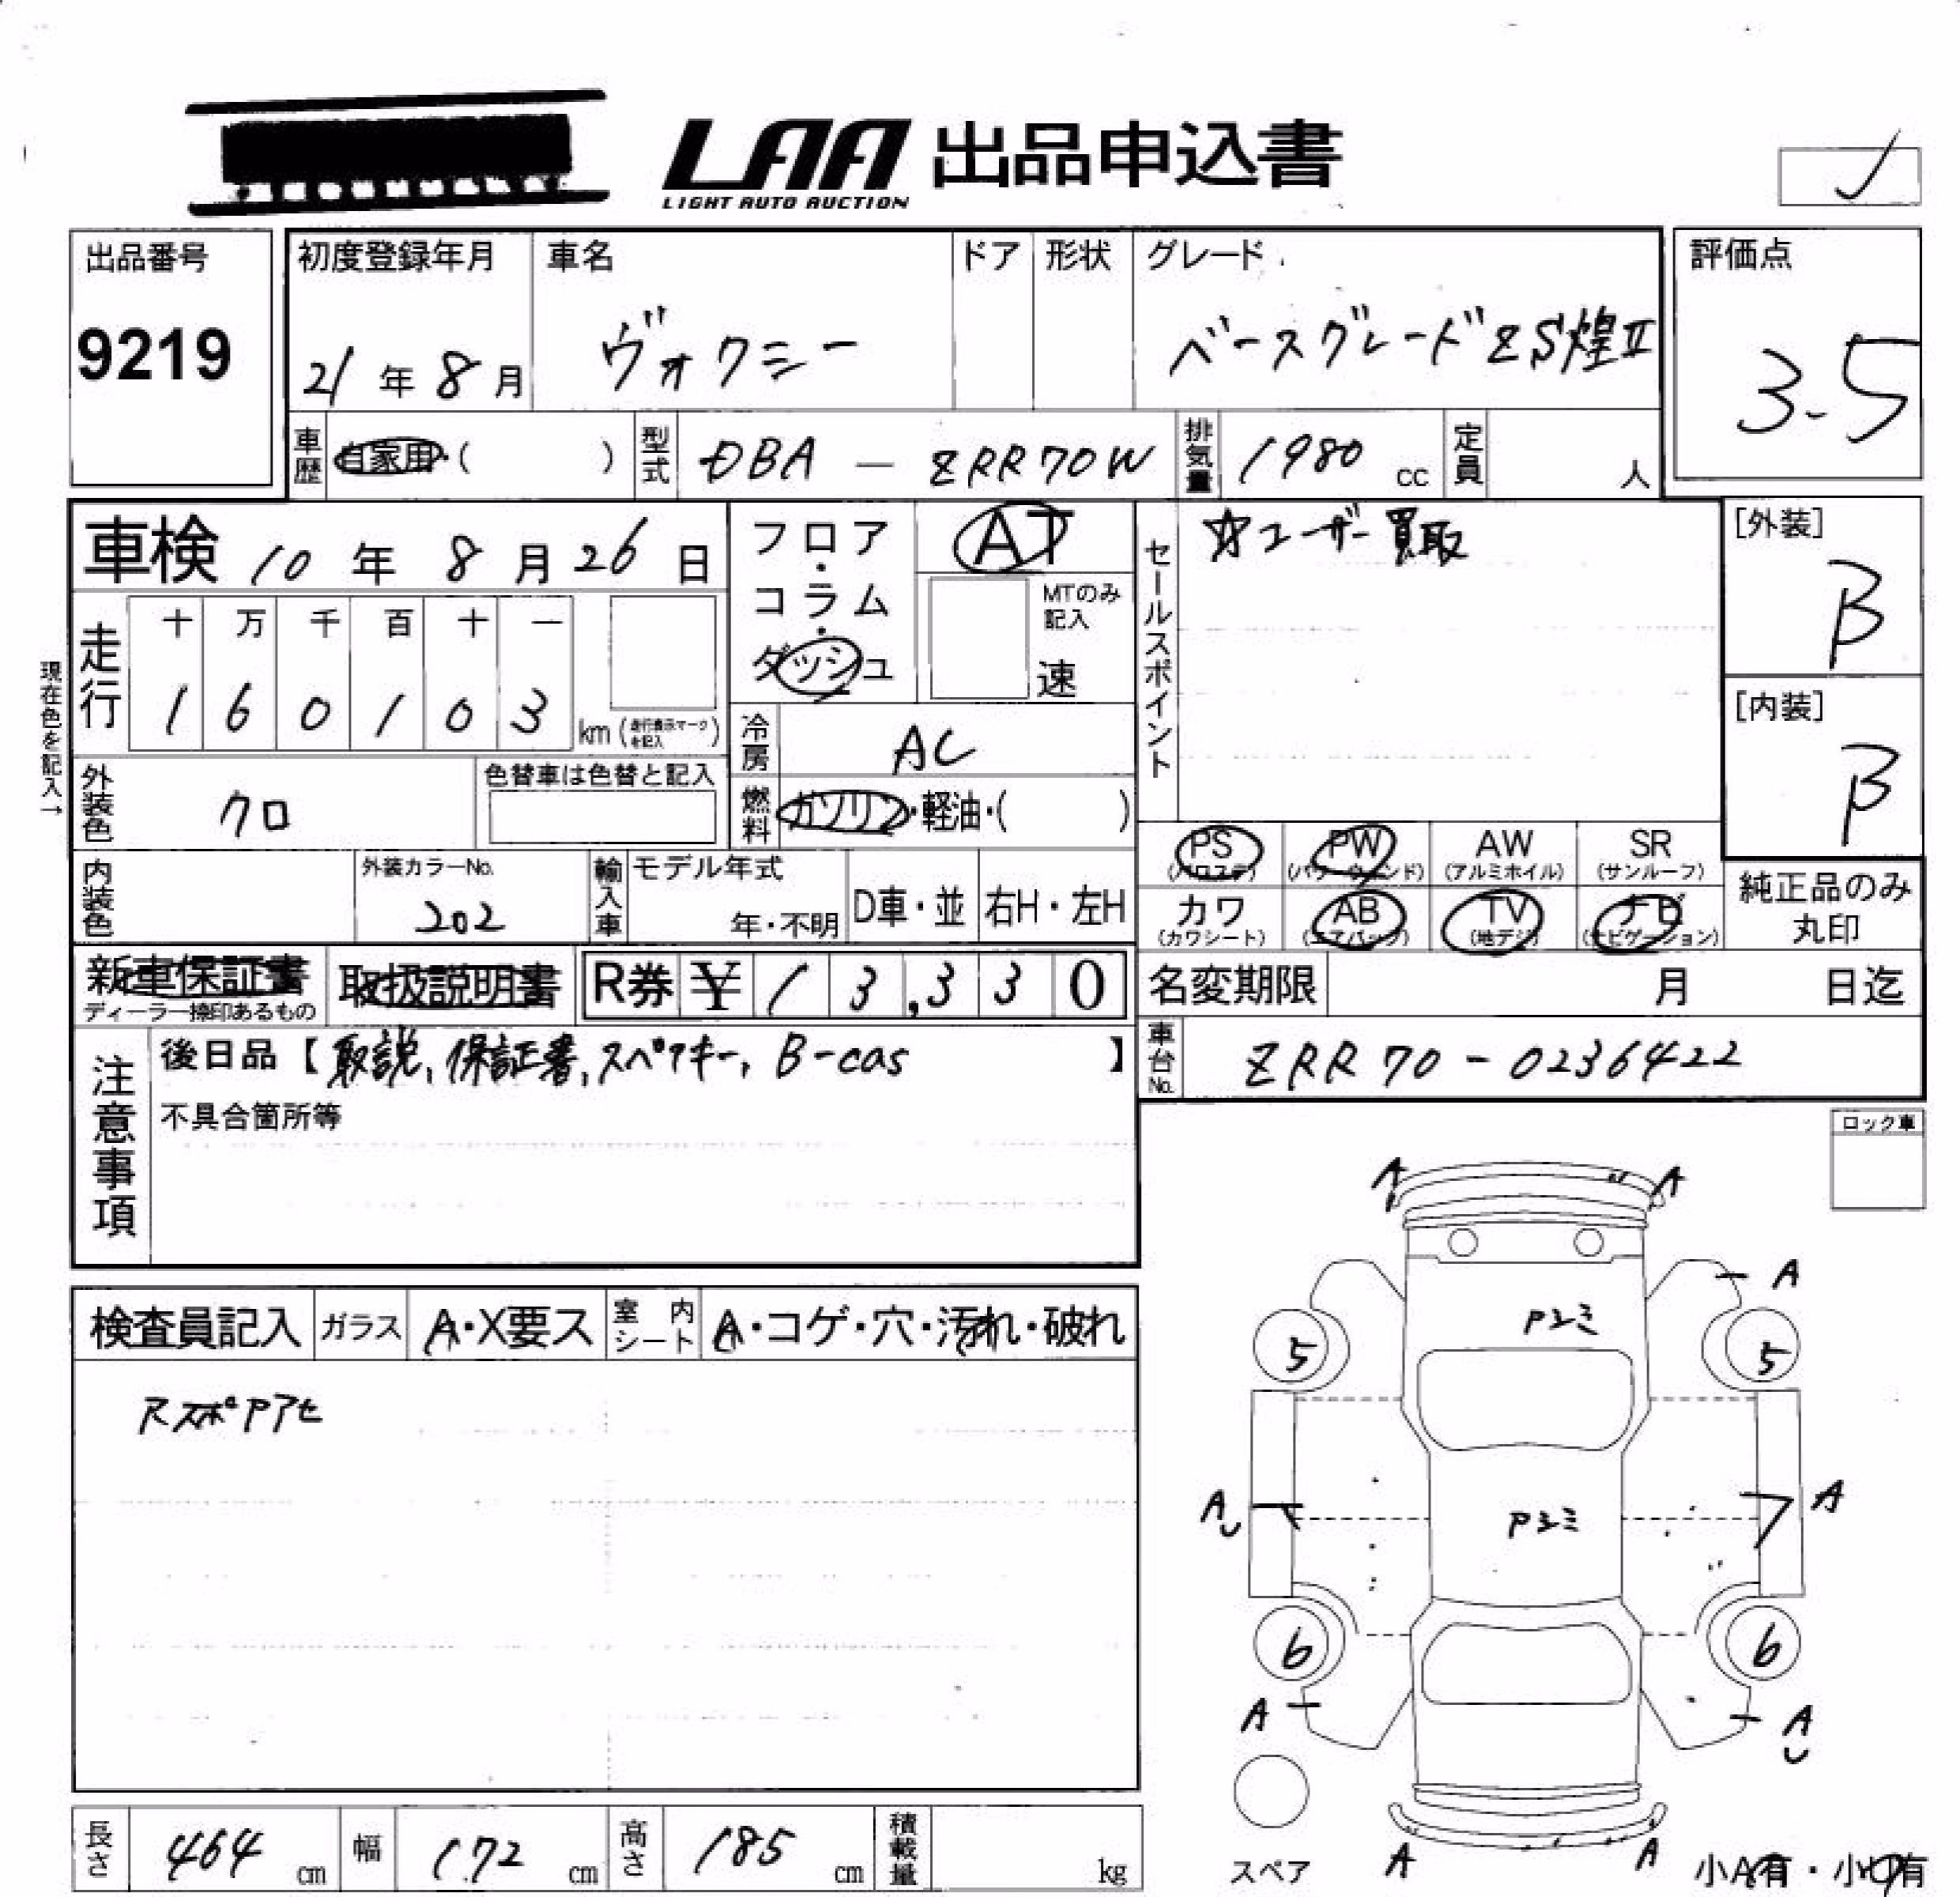 LAA 出品申込書
LIGHT AUTO AUCTION
出品番号
9219
初度登録年月
21年8月
車名
ヴォクシー
ドア
形状
グレード
ベースグレードZS煌II
評価点
3.5
車歴
自家用・( )
型式
DBA - ZRR70W
排気量
1980 cc
定員
人
車検 10年8月26日
フロア・コラム・ダッシュ
AT
MTのみ記入
速
セールスポイント
☆ユーザー買取
[外装]
B
[内装]
B
現在色を記入→
走行
十 万 千 百 十 一
1 6 0 1 0 3 km (走行表示マークを記入)
冷房
AC
外装色
クロ
色替車は色替と記入
燃料
ガソリン・軽油・( )
PS
(パワステ)
PW
(パワーウィンド)
AW
(アルミホイル)
SR
(サンルーフ)
内装色
外装カラーNo.
202
輸入車
モデル年式
年・不明
D車・並
右H・左H
カワ
(カワシート)
AB
(エアバッグ)
TV
(地デジ)
ナビ
(ナビゲーション)
純正品のみ
丸印
新車保証書
ディーラー捺印あるもの
取扱説明書
R券 ¥13,330
名変期限 月 日迄
注意事項
後日品【取説,保証書,スペアキー,B-cas】
不具合箇所等
車台No.
ZRR70-0236422
ロック車
検査員記入
ガラス
A・X要ス
室内シート
A・コゲ・穴・汚れ・破れ
RスポPアセ
A A
A
Pユミ
5 5
A A
Pユミ
6 6
A A
A A
スペア
小A有・小U有
長さ
464 cm
幅
172 cm
高さ
185 cm
積載量
kg